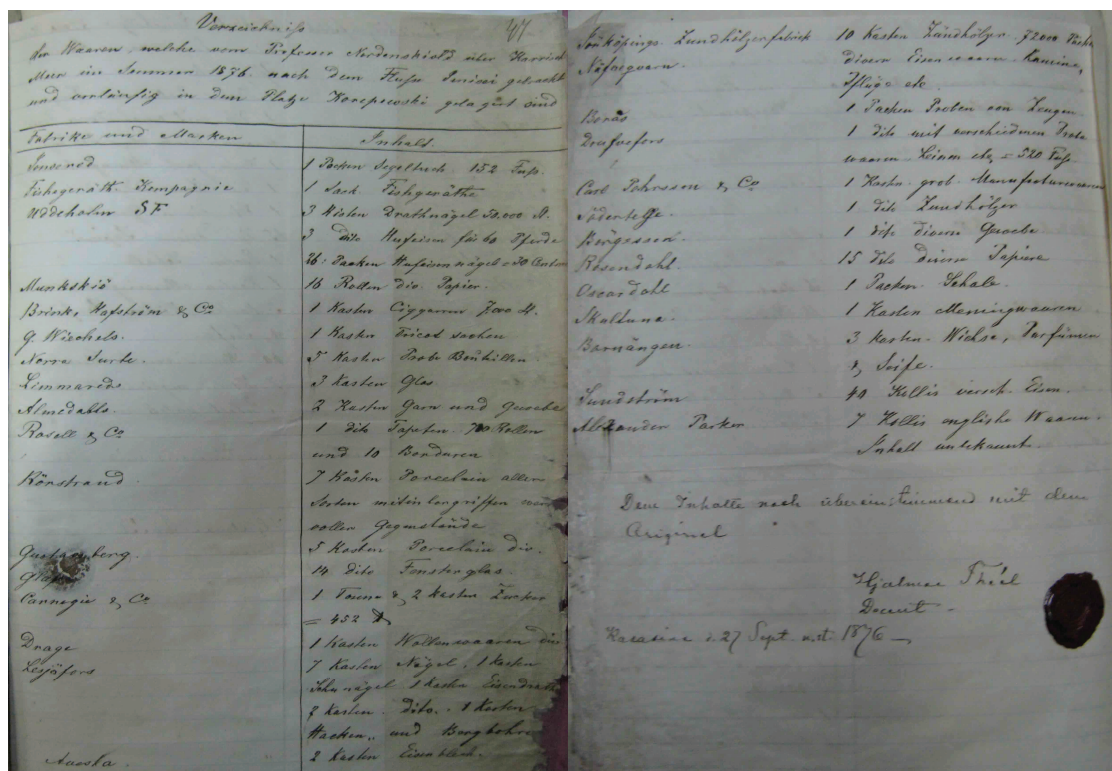 Verzeichniss 47
der Waaren, welche vom Professor Nordenskiöld über Karrisch
Meer im Sommer 1876. nach dem Fluss Jenisei gebracht
und vorläufig in dem Platze Korepowski gelagert sind
Fabrike und Marken Inhalt.
Jonsered 1 Packen Segeltuch 152 Fuss.
Fishegeräth Kompagnie 1 Sack Fishgeräthe
Uddeholm SF 3 Kisten Drathnägel 50.000 St.
3 dito Hufeisen für 60 Pferde
26 Packen Hufeisennägel
Munksjö 16 Rollen div. Papier.
Brinke Hafström & Co 1 Kasten Ciggarren 7000 St.
G. Wischels. 1 Kasten Tricot sachen
Norra Surte. 5 Kasten Probe Boutillen.
Limmareds 3 Kasten Glas
Almedahls. 2 Kasten Garn und Gewebe
Rosell & Co 1 dito Tapeten 700 Rollen
und 10 Borduren
Rörstrand 7 Kasten Porcelain aller
Sorten mitinbegriffen
voller Gegenstände
Gustavsberg. 5 Kasten Porcelain div.
14 dito Fensterglas.
Carnegie & Co. 1 Tonne & 2 Kasten Zucker
= 452
Drags 1 Kasten Wollenwaaren div
Lesjöfors 7 Kasten Nägel. 1 Kasten
Schunägel 1 Kasten Eisendrath
2 Kasten dito. 1 Kasten
Hacken und Bergbohre
Avesta. 2 Kasten Eisenblech.
Jönköpings Zundhölzerfabrik 10 Kasten Zündhölzer 72000
Näfveqvarn. divern Eisenwaaren Kamine,
Pflüge etc.
Borås 1 Packen Proben von Zeugen
Drafvefors 1 dito mit verschiedenen Probe
waaren Leinen etc. = 520 Fuss.
Carl Johnsson & Co 1 Kasten grob. Manufacturwaaren
Södertelje. 1 dito Zundhölzer
Börgessen. 1 dito divern Gewebe
Rosendahl. 15 dito divern Papiere
Oscardahl 1 Packen Schale.
Skultuna. 1 Kasten Messingwaaren
Barnängen 3 Kasten Wichse, Parfümen
&, Seife.
Sundström 40 Kollis versch. Eisen.
Alexander Parker 7 Kollis englishe Waaren.
Inhalt unbekannt.
Dem Inhalte nach übereinstimmend mit dem
Original
Hjalmar Théel
Docent
27 Sept n. st. 1876